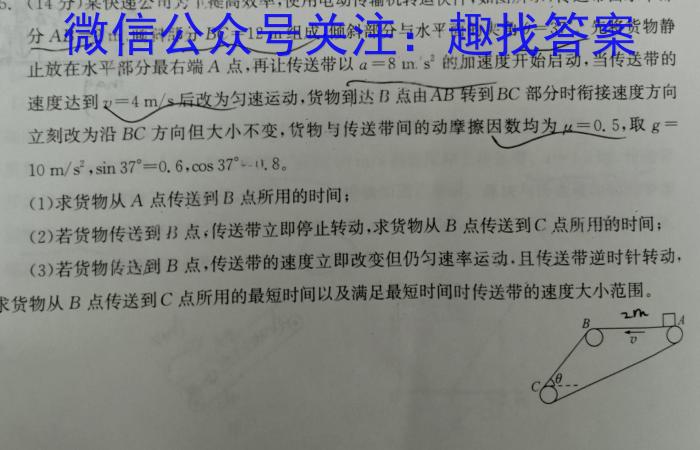 (14分)某快递公司为了提高效率,使用电动传输机转运快件
微信公众号关注：趣找答案
止放在水平部分最右端 A 点,再让传送带以 a=8 m/s² 的加速度开始启动,当传送带的
速度达到 v=4 m/s 后改为匀速运动,货物到达 B 点由 AB 转到 BC 部分时衔接速度方向
立刻改为沿 BC 方向但大小不变,货物与传送带间的动摩擦因数均为 μ=0.5,取 g=
10 m/s²,sin 37°=0.6,cos 37°=0.8。
(1)求货物从 A 点传送到 B 点所用的时间;
(2)若货物传送到 B 点,传送带立即停止转动,求货物从 B 点传送到 C 点所用的时间;
(3)若货物传送到 B 点,传送带的速度立即改变但仍匀速率运动,且传送带逆时针转动,
求货物从 B 点传送到 C 点所用的最短时间以及满足最短时间时传送带的速度大小范围。
2m
B
A
v
C
θ